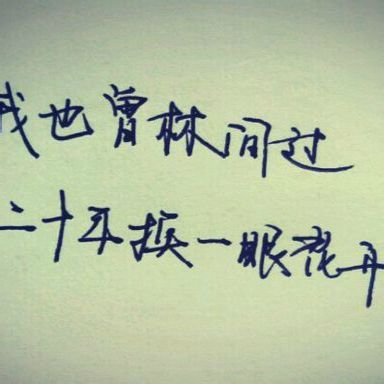 我也曾林间过
二十年换一眼花开